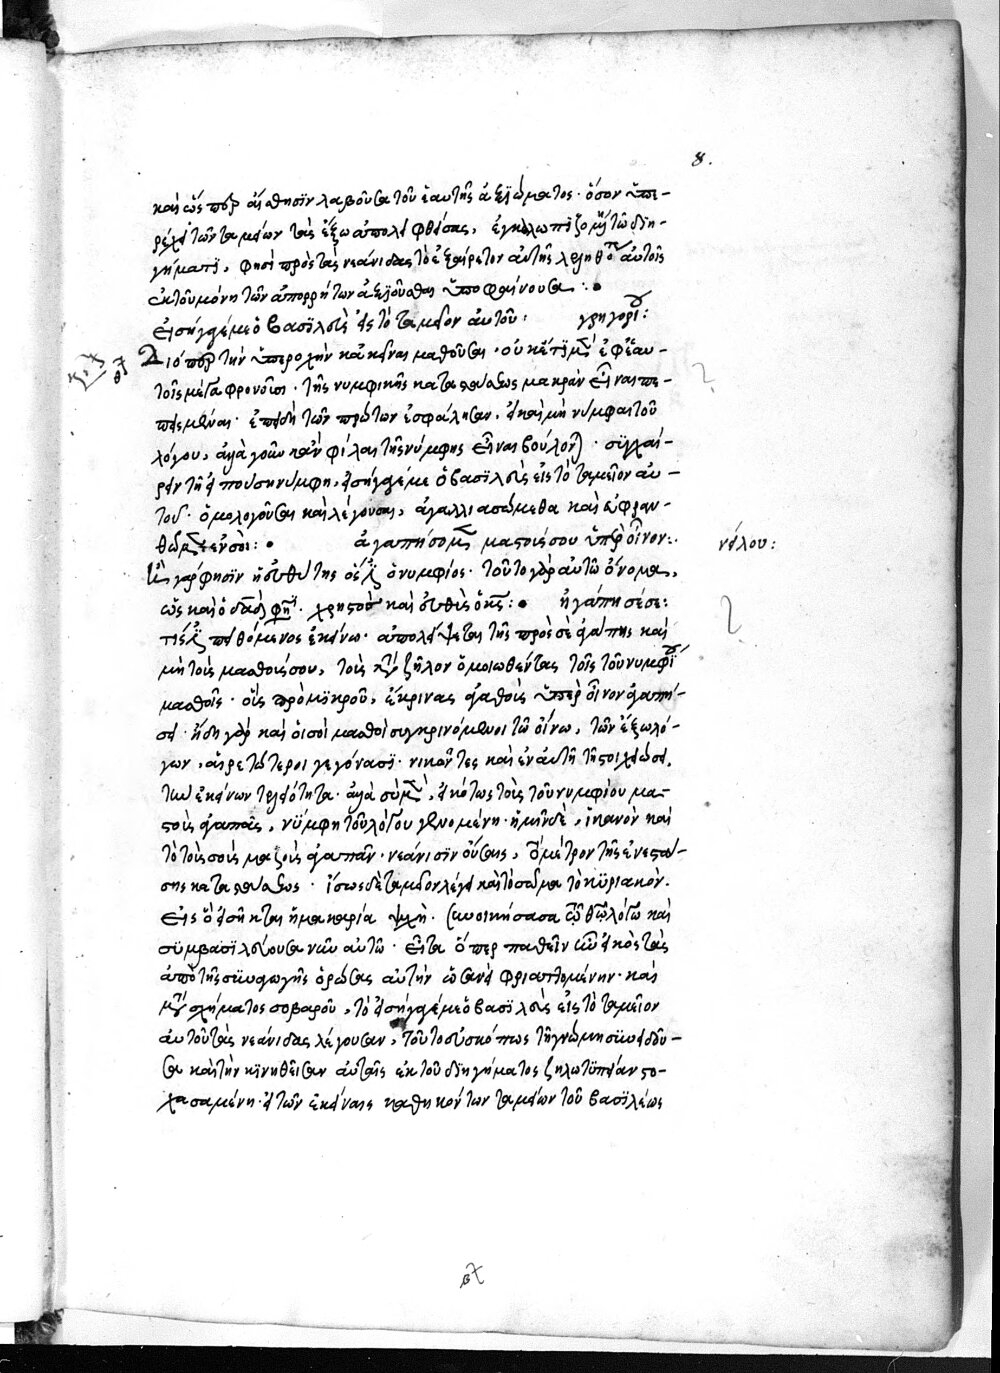 8.
καὶ ὥσπερ αἴσθησιν λαβοῦσα τοῦ ἑαυτῆς ἀξιώματος· ὅσον ὑπε-
ρέχει τῶν ταμείων τὰς ἔξω ἀπολειφθείσας, ἐγκαλλωπιζομένη τῶ διη-
γήματι, φησὶ πρὸς τὰς νεάνιδας τὸ ἐξαίρετον αὐτῆς αὐτοῖς
ἐκ τοῦ μόνη τῶν ἀπορρήτων ἀξιοῦσθαι ὑποφαίνουσα :·
Εἰσήγαγέ με ὁ βασιλεὺς εἰς τὸ ταμεῖον αὐτοῦ· γρηγορίου:
Διόπερ τὴν ὑπεροχὴν κἀκεῖναι μαθοῦσαι· οὐκέτι μὲν ἐφ' ἑαυ-
τοῖς μέγα φρονοῦσι· τῆς νυμφικῆς καταστάσεως μακρὰν εἶναι πε-
πεισμέναι· ἐπειδὴ τῶν πρώτων ἐσφάλησαν, εἰ καὶ μὴ νύμφαι τοῦ
λόγου, ἀλλὰ γοῦν κἂν φίλαι τῆς νύμφης εἶναι βούλονται· συγχαί-
ρειν τῆ εἰπούση νύμφη, εἰσήγαγέ με ὁ βασιλεὺς εἰς τὸ ταμεῖον αὐ-
τοῦ· ὁμολογοῦσαι καὶ λέγουσαι, ἀγαλλιασώμεθα καὶ εὐφραν-
θῶμεν ἐν σοὶ: ἀγαπήσομεν μαστούς σου ὑπὲρ οἶνον:. νείλου:
ὁ νυμφίος· τοῦτο γὰρ αὐτῶ ὄνομα,
ὡς καὶ ὁ δαδ φησι· χρηστὸς καὶ εὐθὺς ὁ κς: ἠγάπησέ σε:
πειθόμενος ἐκείνω· ἀπολείψεται τῆς πρὸς σὲ ἀγάπης καὶ
μὴ τοὺς μασθούς σου, τοὺς κατὰ ζῆλον ὁμοιωθέντας τοῖς τοῦ νυμφίου
μασθοῖς· οὓς πρὸ μικροῦ, ἔκρινας ἀγαθοὺς ὑπὲρ οἶνον ἀγαπή-
σει· ἤδη γὰρ καὶ οἱ σοὶ μασθοὶ συγκρινόμενοι τῶ οἴνω, τῶν ἔξω λό-
γων, αἱρετώτεροι γεγόνασι· νικῶντες καὶ ἐν αὐτῆ τῆ στοιχειώσει,
τὴν ἐκείνων τελειότητα· ἀλλὰ σὺ μὲν, εἰκότως τοὺς τοῦ νυμφίου μα-
στοὺς ἀγαπᾶς, νύμφη τοῦ λόγου γενομένη· ἡμῖν δὲ, ἱκανὸν καὶ
τὸ τοὺς σοὺς μαζοὺς ἀγαπᾶν· νεάνισιν οὔσαις, μέτρον τῆς ἐνεστώ-
σης καταστάσεως· ἴσως δὲ ταμεῖον λέγει καὶ τὸ σῶμα τὸ κυριακὸν.
Εἰς ὃ εἰσῆκται ἡ μακαρία ψυχὴ· συνοικήσασα τῶ θεῶ λόγω καὶ
συμβασιλεύουσα νῦν αὐτῶ· Εἶτα ὅπερ παθεῖν εἰκὸς τὰς
ἀπὸ τῆς συναγωγῆς ὁρώσας αὐτὴν καὶ
μετὰ σχήματος σοβαροῦ, τὸ εἰσήγαγέ με ὁ βασιλεὺς εἰς τὸ ταμεῖον
αὐτοῦ τὰς νεάνιδας λέγουσαν, τοῦτο εὐσκόπως τῆ γνώμη συνιδοῦ-
σα καὶ τὴν κινηθεῖσαν αὐταῖς ἐκ τοῦ διηγήματος ζηλοτυπίαν στο-
χασαμένη· τῶν ἐκείναις καθηκόντων ταμείων τοῦ βασιλέως